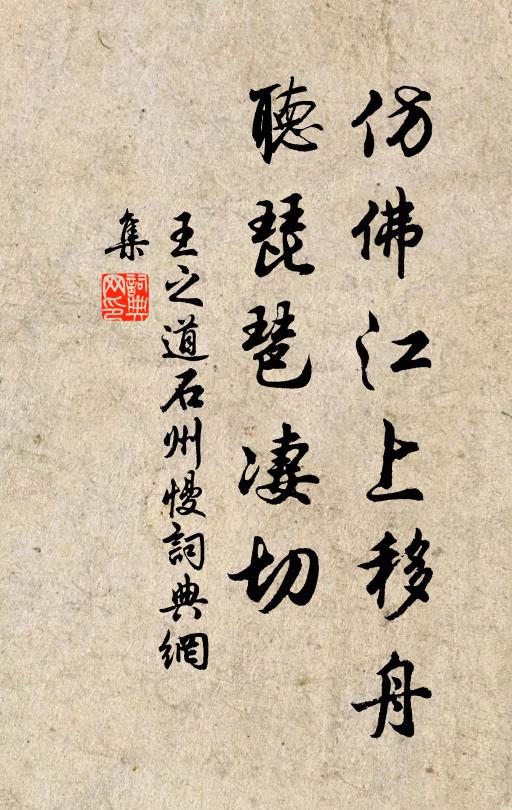 仿佛江上移舟
聽琵琶凄切
王之道石州慢詞典網
集
詞典
网印